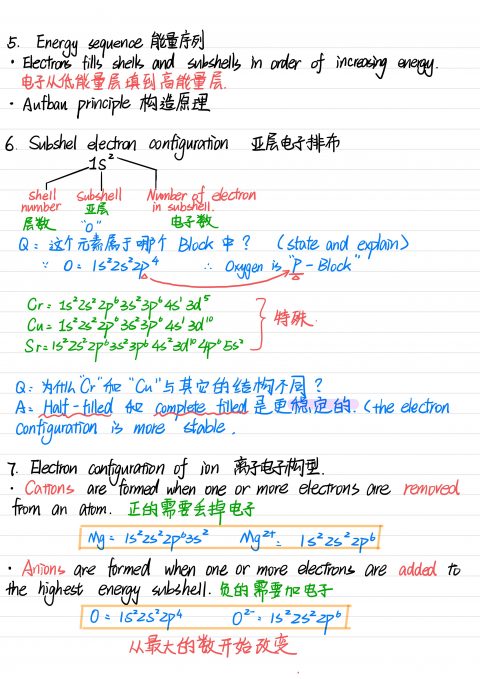 5. Energy sequence 能量序列
• Electrons fills shells and subshells in order of increasing energy.
电子从低能量层填到高能量层.
• Aufbau principle 构造原理
6. Subshel electron configuration 亚层电子排布
1s²
shell number 层数
subshell 亚层 "O"
Number of electron in subshell. 电子数
Q: 这个元素属于哪个 Block 中? (state and explain)
∵ O = 1s²2s²2p⁴ ∴ Oxygen is "P - Block"
Cr = 1s²2s²2p⁶3s²3p⁶4s¹3d⁵
Cu = 1s²2s²2p⁶3s²3p⁶4s¹3d¹⁰
Sr = 1s²2s²2p⁶3s²3p⁶4s²3d¹⁰4p⁶5s²
特殊.
Q: 为什么 "Cr" 和 "Cu" 与其它的结构不同?
A: Half-filled 和 complete filled 是更稳定的. (the electron
configuration is more stable.
7. Electron configuration of ion 离子电子构型.
• Cations are formed when one or more electrons are removed
from an atom. 正的需要丢掉电子
Mg = 1s²2s²2p⁶3s² Mg²⁺ = 1s²2s²2p⁶
• Anions are formed when one or more electrons are added to
the highest energy subshell. 负的需要加电子
O = 1s²2s²2p⁴ O²⁻ = 1s²2s²2p⁶
从最大的数开始改变